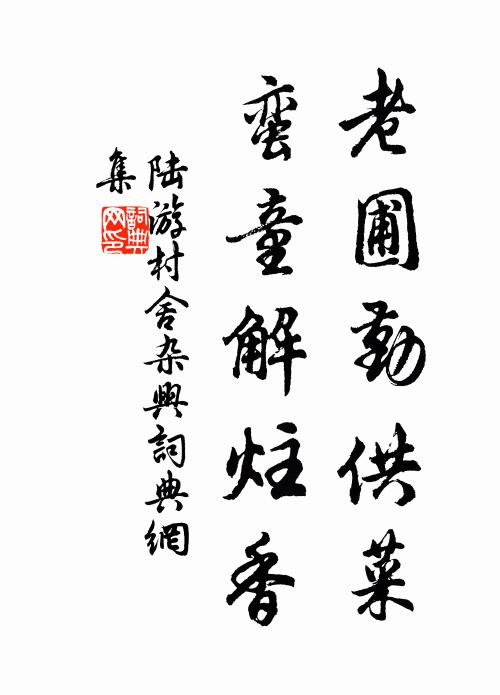 老圃勤供菜
蛮童解炷香
陆游村舍杂兴詞典網
集
詞典
网印